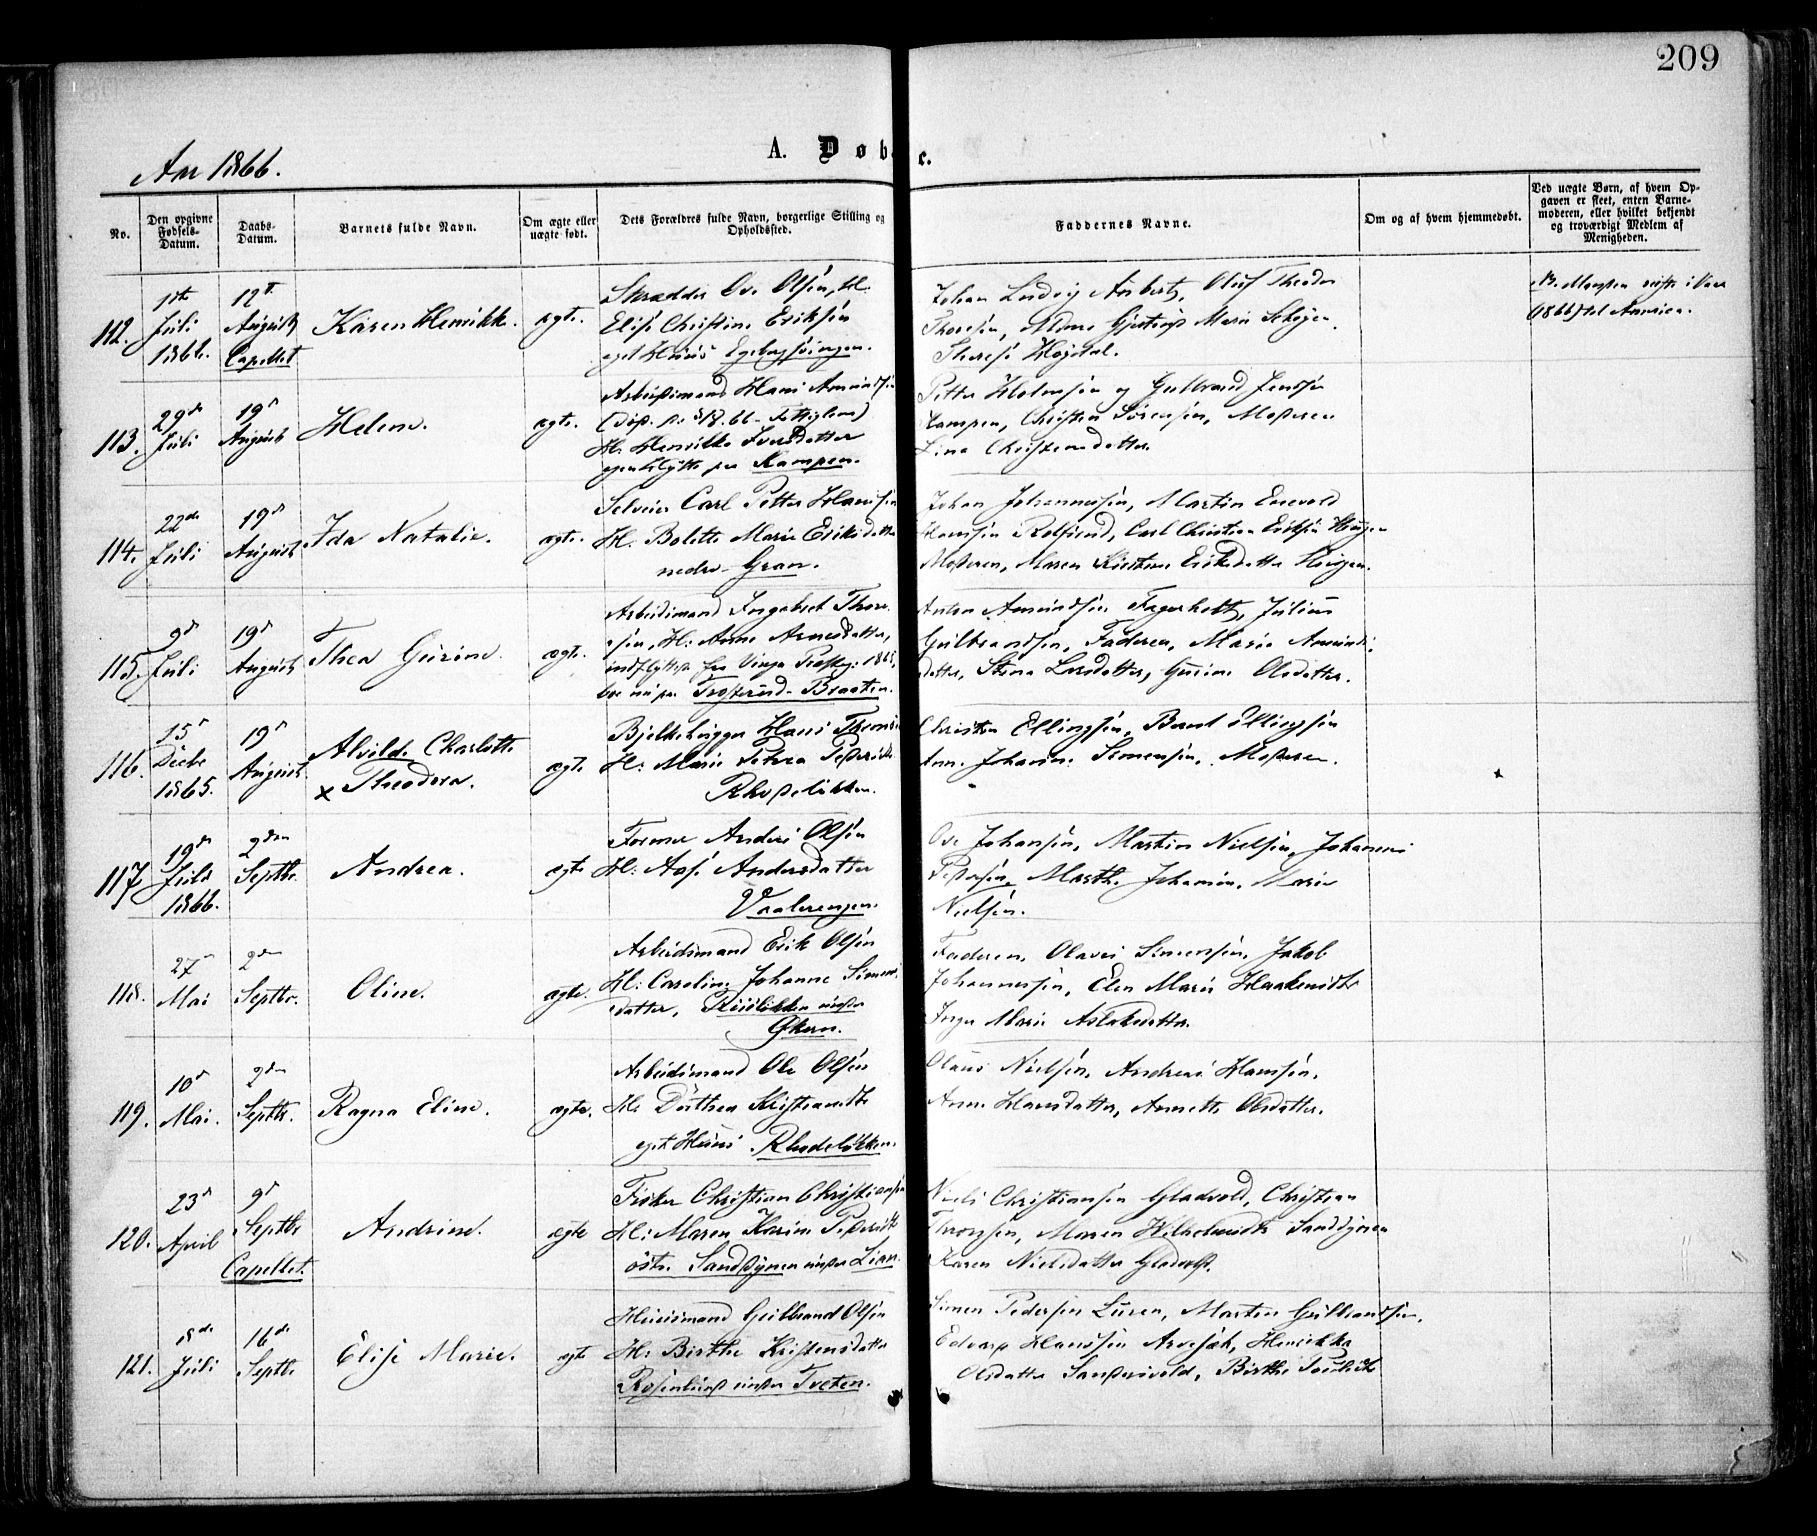 209
A. Døbte.
Aar 1866.
No.
Den opgivne Fødsels-Datum.
Daabs-Datum.
Barnets fulde Navn.
Om ægte eller uægte født.
Dets Forældres fulde Navn, borgerlige Stilling og Opholdssted.
Faddernes Navne.
Om og af hvem hjemmedøbt.
Ved uægte Børn, af hvem Opgaven er skeet, enten Barnemoderen, eller hvilket bekjendt og troværdigt Medlem af Menigheden.
112.
1ste
Juli
1866.
12te
August
Capellet
Karen Henrikke.
ægte.
Skrædder Ove Olsen, H.
Elise Christine Eriksen
eget Huus
Johan Ludvig Oluf Theodor
Thoresen, Marie
Therese
reiste i
(1866) til America.
113.
29de
Juli
19de
August
Helene.
ægte.
Arbeidsmand Hans Amundsen
H. Henrikke Iversdatter
Kampen.
Petter Holmsen og Gulbrand Jensen
Kampen, Christen Sørensen, Moderen
Lina Christensdatter.
114.
22de
Juli
19de
August
Ida Natalie.
ægte.
Selveier Carl Petter Hansen
H. Bolette Marie Eriksdatter
nedre Gran.
Johan Johannessen, Martin Enevold
Hansen Carl Christian Eriksen Haugen
Moderen, Maren Kirstine Eriksdatter Haugen.
115.
9de
Juli
19de
August
Thea Gurine.
ægte.
Arbeidsmand Ingebret Thore-
sen, H: Anne Arnesdatter,
indflyttet fra Vinger Præstegj: 1865,
Trosterud-Braaten.
Anton Amundsen Fagerholt, Julius
Gulbrandsen, Faderen, Maria Amunds-
datter, Stina Larsdatter, Gurine Olsdatter.
116.
15de
Decbr
1865.
19de
August
Alvilde Charlotte
x Theodora.
ægte
Hans
H: Marie Petrea Pedersdtr
Rhodeløkken.
Christen Ellingsen, Bernt Ellingsen
Anne Johanne Simensen, Moderen.
117.
19de
Juli
1866.
2den
Septbr.
Andrea.
ægte
Former Anders Olsen
H: Aase Andersdatter
Vaalerengen.
Ove Johansen, Martin Nielsen, Johannes
Pedersen, Marthe Johansen, Marie
Nielsen.
118.
27de
Mai
2den
Septbr.
Oline.
ægte.
Arbeidsmand Erik Olsen
H: Caroline Johanne Simens-
datter, under
Økern.
Faderen, Olaves Simensen, Jakob
Johannessen, Elen Marie
Inger Marie Aslaksdatter.
119.
10de
Mai.
2den
Septbr.
Ragna Eline.
ægte.
Arbeidsmand Ole Olsen
H: Dorthea Kristiansdtr
eget Huus Rhodeløkken.
Olaus Nielsen, Andreas Hansen,
Anne Hansdatter, Annette Olsdatter.
120.
23de
April
9de
Septbr
Capellet.
Andrine.
ægte
Fisker Christian Christiansen
H: Maren Karine Pedersdtr
østre Sandstuen under Lian.
Niels Christiansen Gladvold, Christian
Thoresen, Maren Wilhelmsdtr
Karen Nielsdatter Gladvold.
121.
18de
Juli
16de
Septbr
Elise Marie.
ægte
Huusmand Gulbrand Olsen
H: Birthe Kristensdatter
Rosenlund under Tveten.
Simen Pedersen Luren, Morten Gulbrandsen,
Edvard Hanssen Henrikka
Olsdatter Birthe